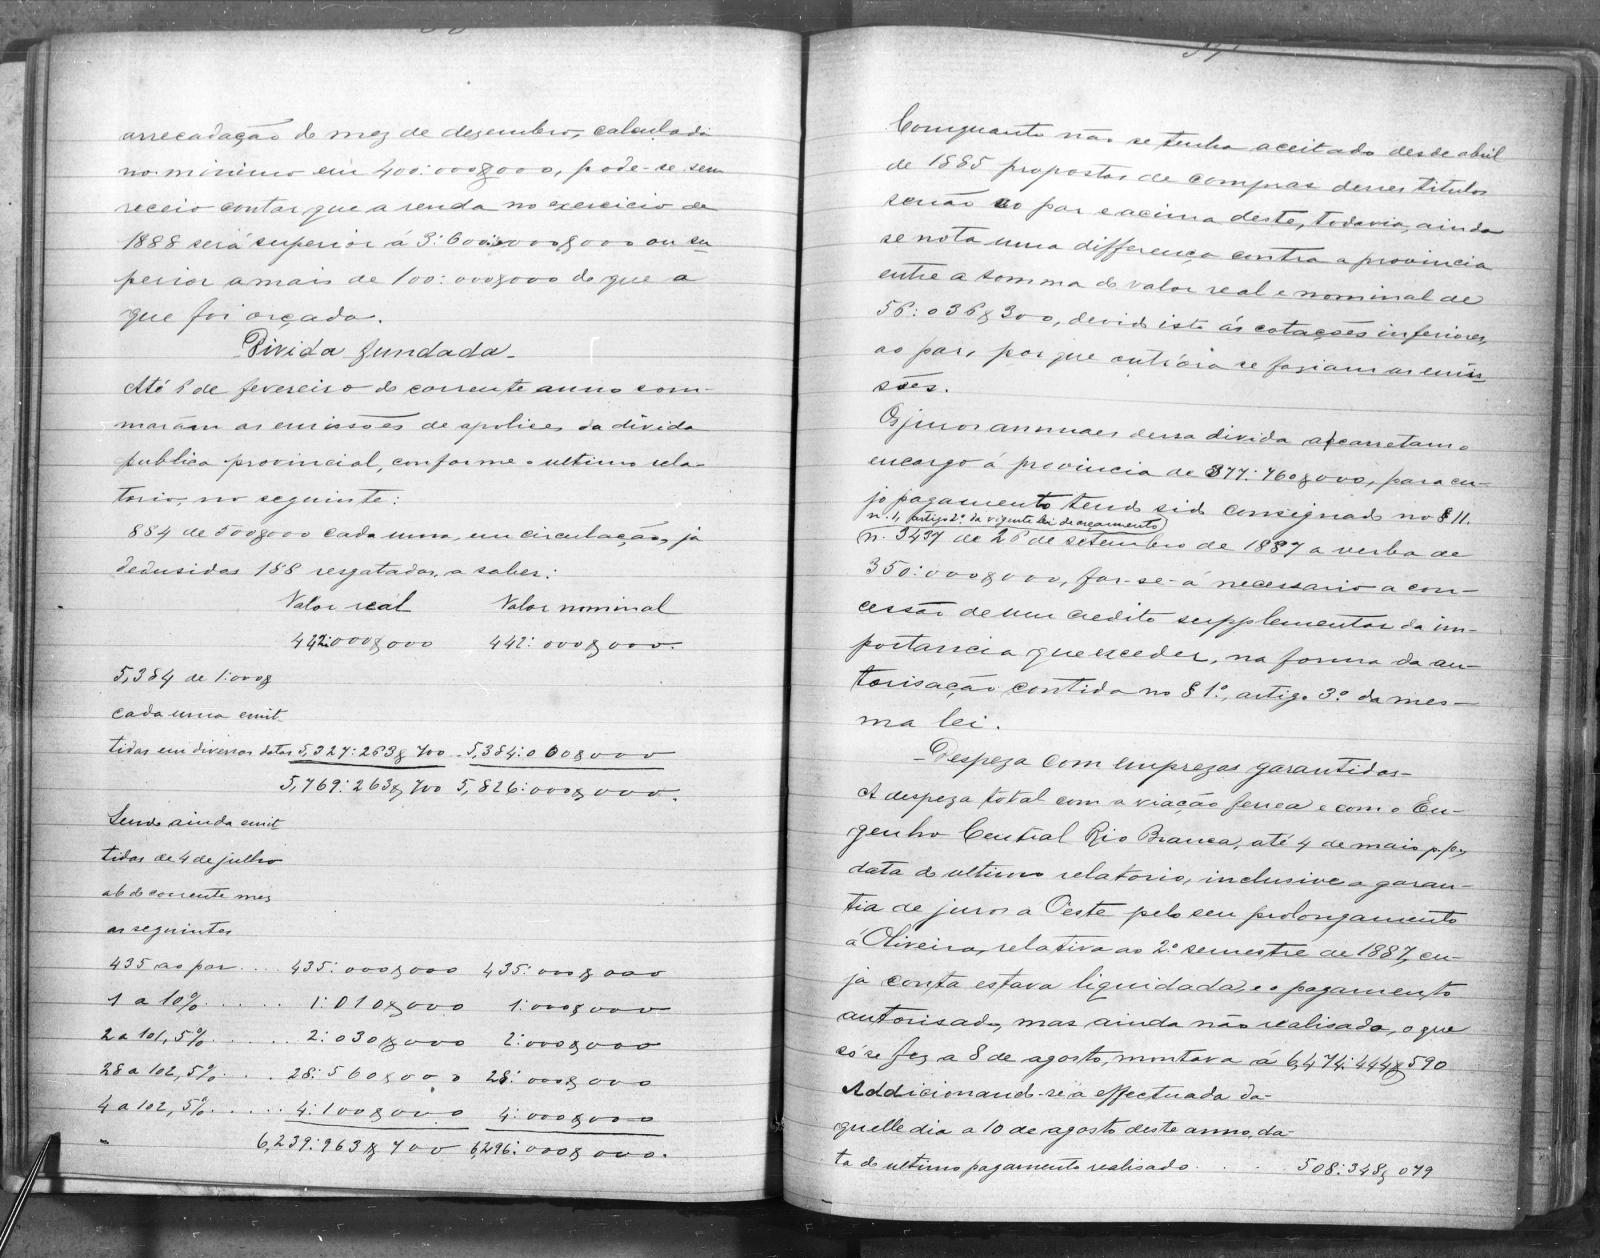 arrecadação do mez de dezembro, calculada
no minimo em 400:000$000, pode-se sem
receio contar que a renda no exercicio de
1888 será superior á 3:600:000$000 ou su
perior a mais de 100:000$000 do que a
que foi orçada.
Divida fundada.
Até 1º de fevereiro do corrente anno som-
marám as emissões de apolices da divida
publica provincial, conforme o ultimo rela
torio, no seguinte:
884 de 500$000 cada uma, em circulação, já
dedusidas 188 resgatadas, a saber:
Valor real Valor nominal
442:000$000 442:000$000.
5,384 de 1:000$
cada uma emit
tidas em diversas datas 5,327:263$700 5,384:000$000
5,769:263$700 5,826:000$000.
Sendo ainda emit
tidas de 4 de julho
a 6 do corrente mez
as seguintes
435 ao par .... 435:000$000 435:000$000
1 a 10% ..... 1:010$000 1:000$000
2 a 101,5% ..... 2:030$000 2:000$000
28 a 102,5% .... 28:560$000 28:000$000
4 a 102,5% ..... 4:100$000 4:000$000
6,239:963$700 6,296:000$000.
Comquanto não se tenha aceitado desde abril
de 1885 propostas de compras desses titulos
senão ao par e acima deste, todavia, ainda
se nota uma differença contra a provincia
entre a somma do valor real e nominal de
56:036$300, devido isto ás cotações inferiores
ao par, por que outróra se fasiam as emis
sões.
Os juros annuaes dessa divida acarretam o
encargo á provincia de 377:760$000, para cu-
jo pagamento tendo sido consignado no § 11.
n. 1, artigo 2º da vigente lei de orçamento
n. 3437 de 28 de setembro de 1887 a verba de
350:000$000, far-se-á necessario a con-
cessão de um credito supplementar da im-
portancia que exceder, na forma da au-
torisação contida no § 1º, artigo 3º da mes-
ma lei.
Despeza com emprezas garantidas
A despeza total com a viação ferrea e com o En-
genho Central Rio Branco, até 4 de maio p.p.,
data do ultimo relatorio, inclusive a garan-
tia de juros a Oeste pelo seu prolongamento
á Oliveira, relativa ao 2º semestre de 1887, cu-
ja conta estava liquidada, e o pagamento
autorisado, mas ainda não realisado, o que
só se fez a 8 de agosto, montava á 6,474:444$590
Addicionando-se a effectuada da-
quelle dia a 10 de agosto deste anno, da-
ta do ultimo pagamento realisado .... 508:348$079